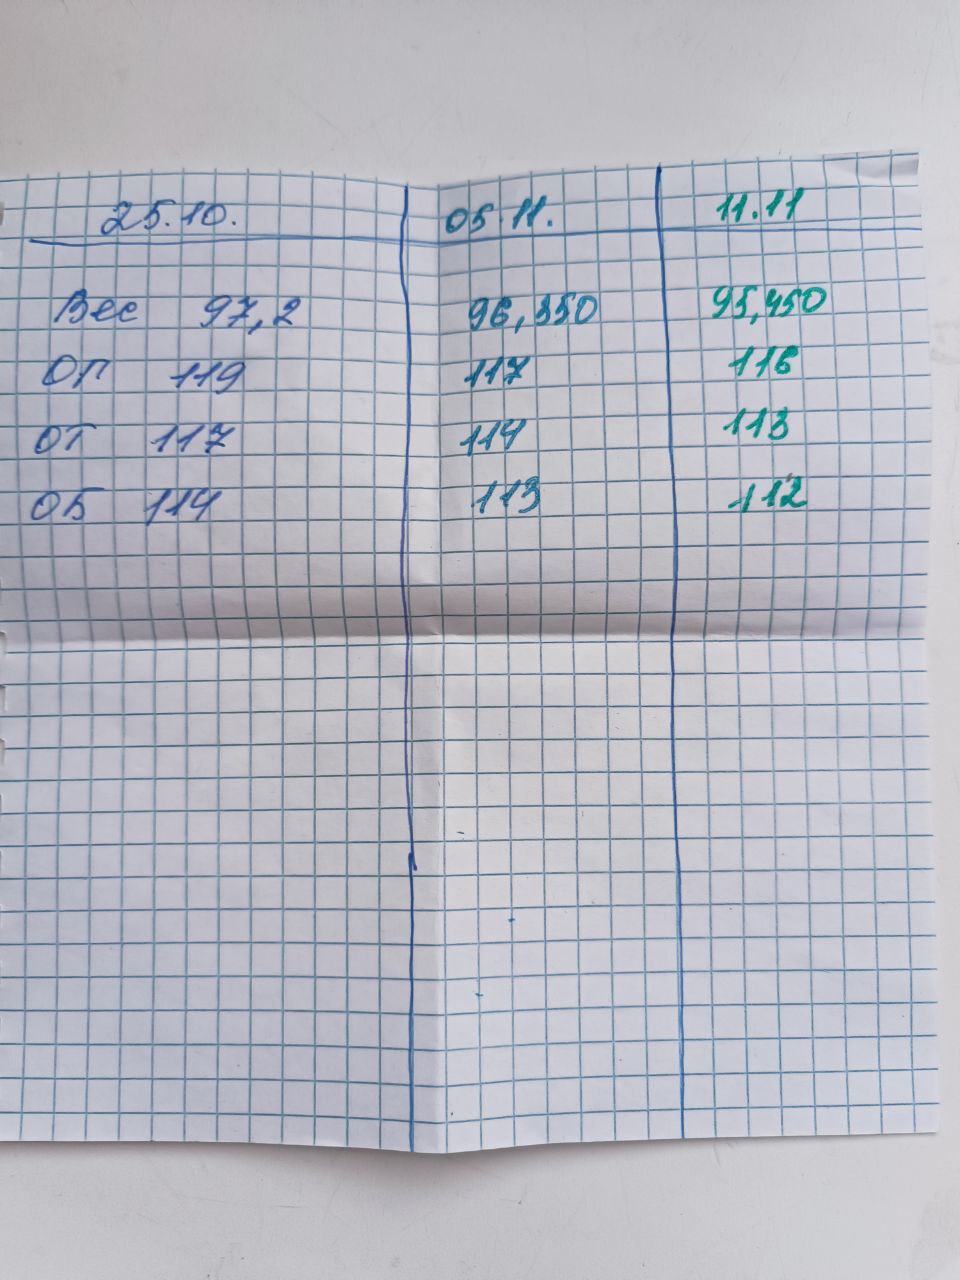 25.10. 05.11. 11.11
Вес 97,2 96,350 95,450
ОГ 119 117 116
ОТ 117 114 113
ОБ 114 113 112